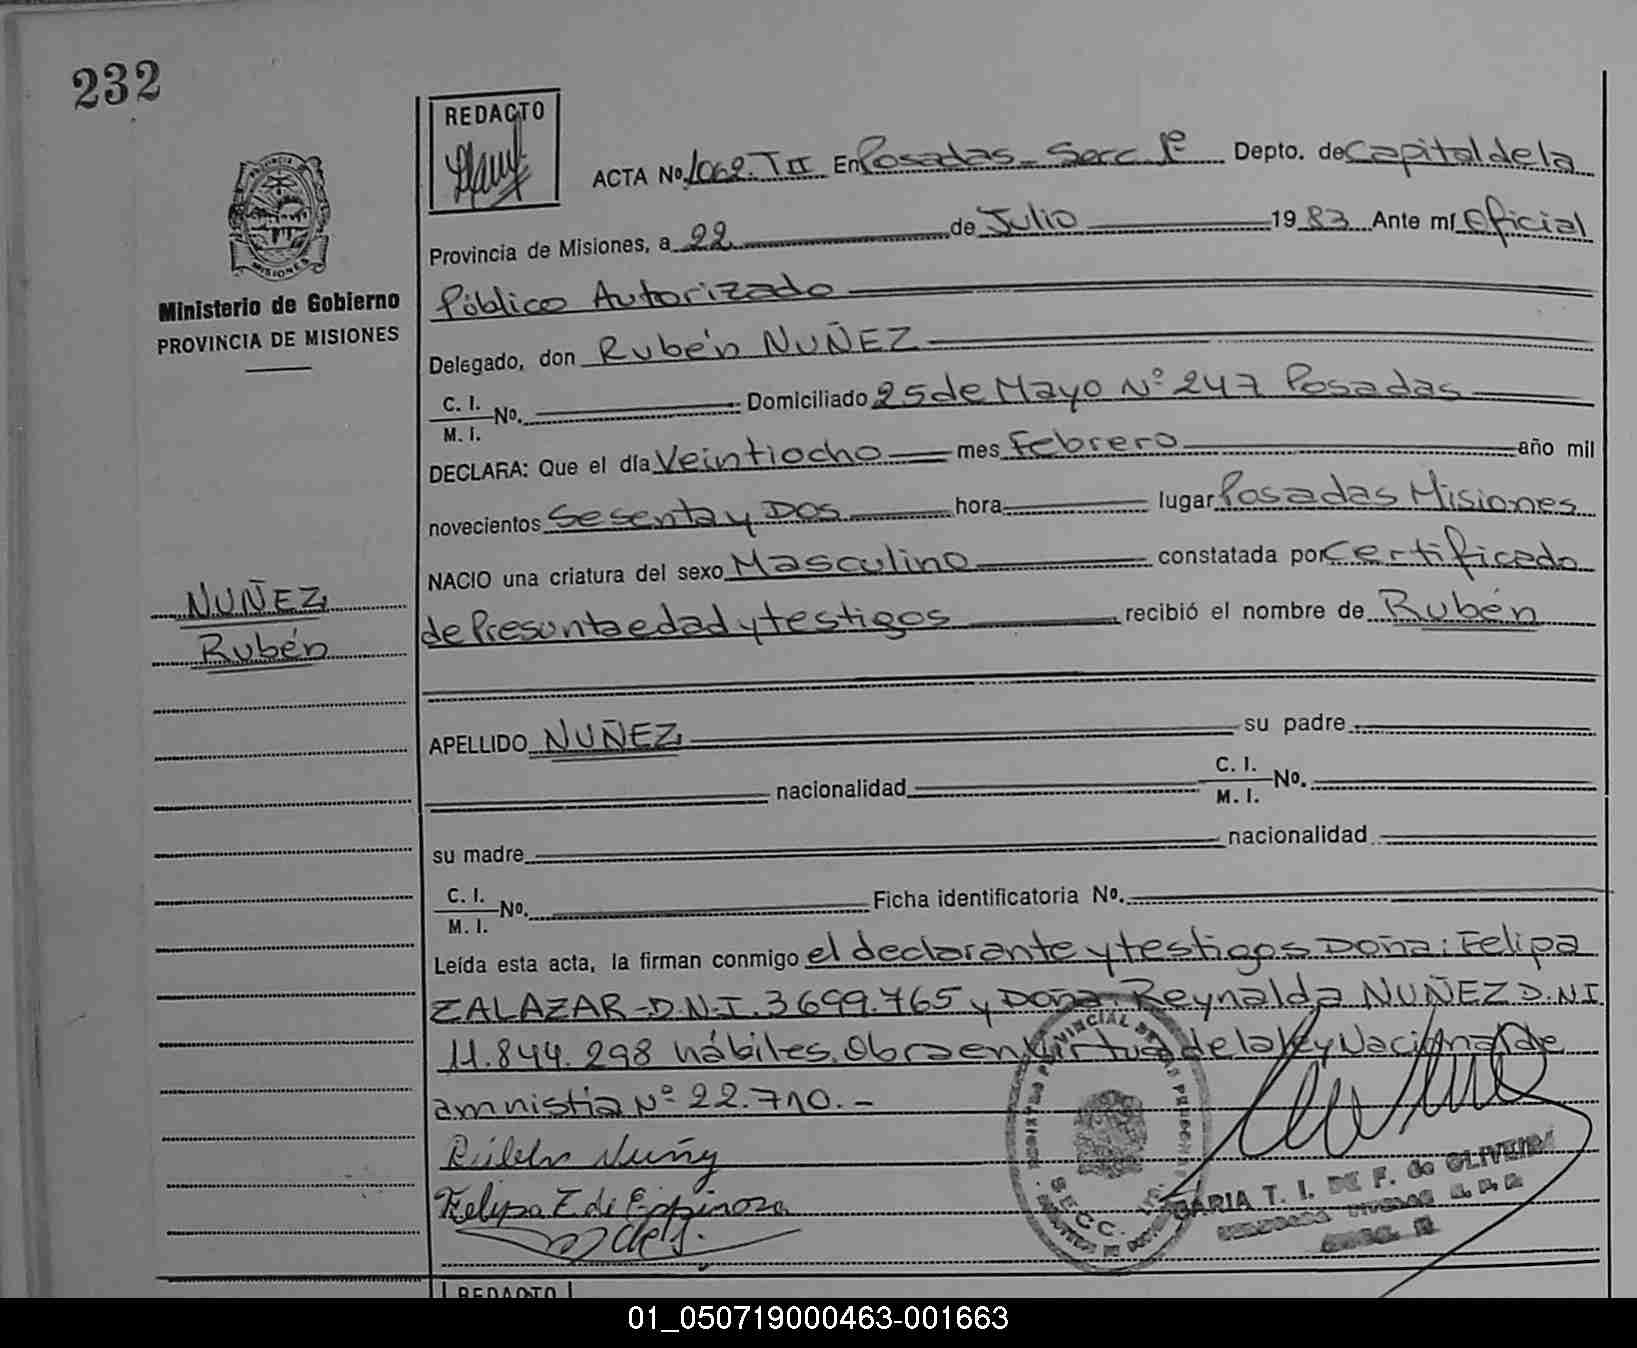 232
REDACTO
ACTA No. 1062. T II En Posadas - Secc 1º Depto. de Capital de la
Provincia de Misiones, a 22 de Julio 1983 Ante mí Oficial
Público Autorizado
Delegado, don Rubén NUÑEZ
C. I.
M. I. No. Domiciliado 25 de Mayo Nº 247 Posadas
DECLARA: Que el día Veintiocho mes Febrero año mil
novecientos Sesenta y Dos hora lugar Posadas Misiones
NACIO una criatura del sexo Masculino constatada por Certificado
de Presunta edad y testigos recibió el nombre de Rubén
APELLIDO NUÑEZ su padre
nacionalidad C. I.
M. I. No.
su madre nacionalidad
C. I.
M. I. No. Ficha identificatoria No.
Leída esta acta, la firman conmigo el declarante y testigos Doña: Felipa
ZALAZAR - D.N.I. 3699.765 y Doña. Reynalda NUÑEZ D.N.I.
11.844.298 hábiles. Obra en Virtud de la Ley Nacional de
amnistia Nº 22.710.-
Felipa Z de Espinoza
MARIA T. I. DE F. de OLIVEIRA
SECC.
REDACTO
PROVINCIA
MISIONES
Ministerio de Gobierno
PROVINCIA DE MISIONES
NUÑEZ
Rubén
01_050719000463-001663